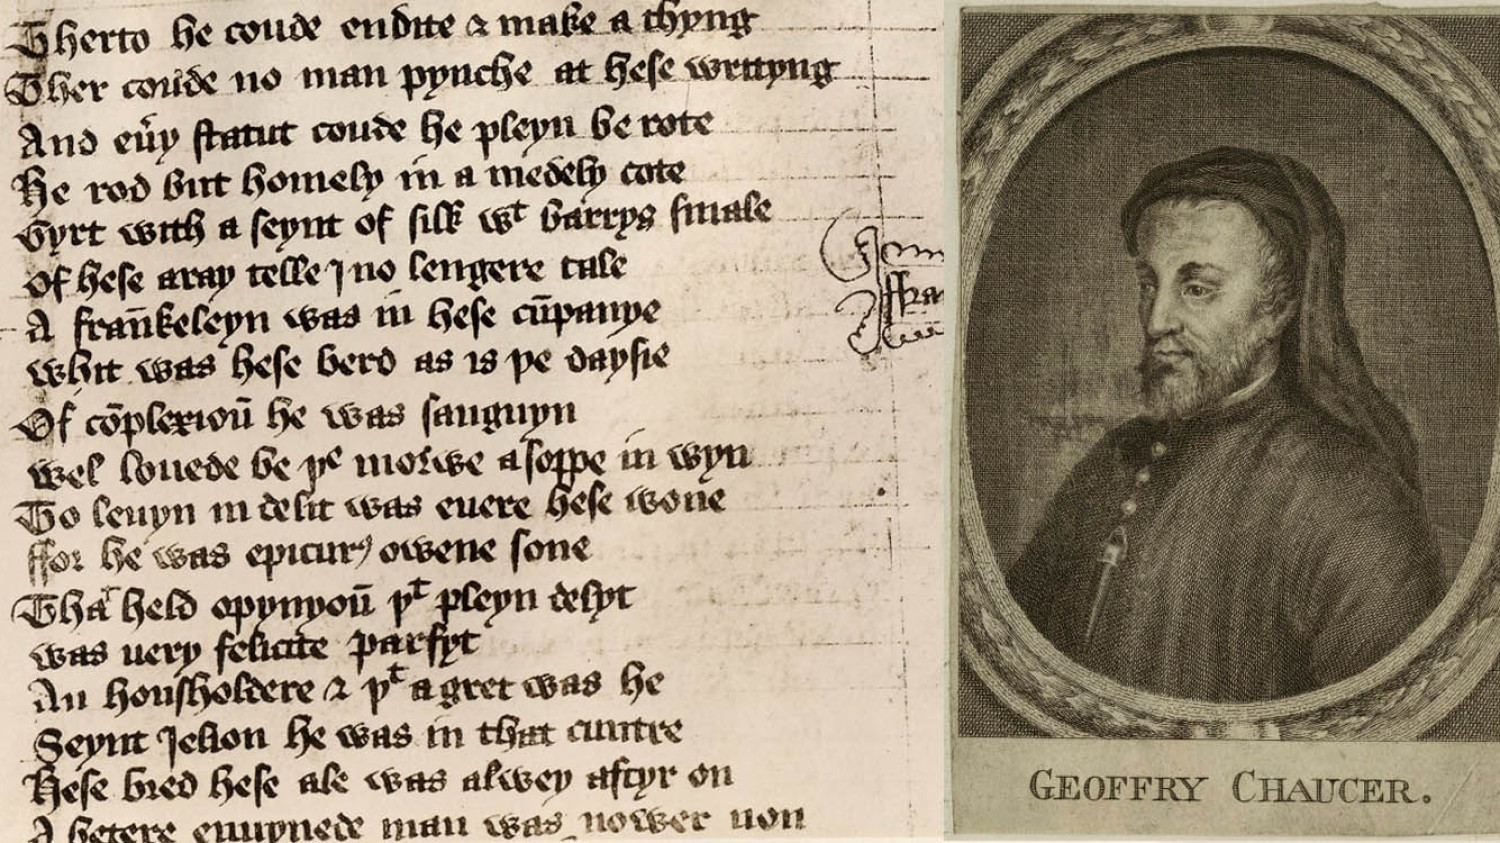 Therto he coude endite & make a thyng
Ther coude no man pynche at hese writyng
And eu̾y statut coude he pleyn be rote
He rod but homely in a medely cote
Gyrt with a seynt of silk wᵗ barrys smale
Of hese aray telle I no lengere tale
A fran̄keleyn was in hese cūpanye
whit was hese berd as is þe daysie
Of cōplexioū he was sanguyn
wel louede he þᵉ morwe a soppe in wyn
To leuyn in delit was euere hese wone
ffor he was epicurꝰ owene sone
That held opynyoū þᵗ pleyn delyt
was uery felicite parfyt
An housholdere & þᵗ a gret was he
Seynt Iulion he was in that cuntre
Hese bred hese ale was alwey aftyr on
A betere enuynede man was nower non
GEOFFRY CHAUCER.